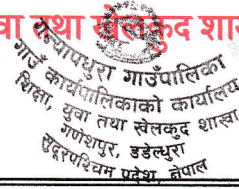 वा तथा खेलकुद शा
गन्यापधुरा गाउँपालिका
गाउँ कार्यपालिकाको कार्यालय
शिक्षा, युवा तथा खेलकुद शाखा
गणेशपुर, डडेल्धुरा
सुदूरपश्चिम प्रदेश, नेपाल